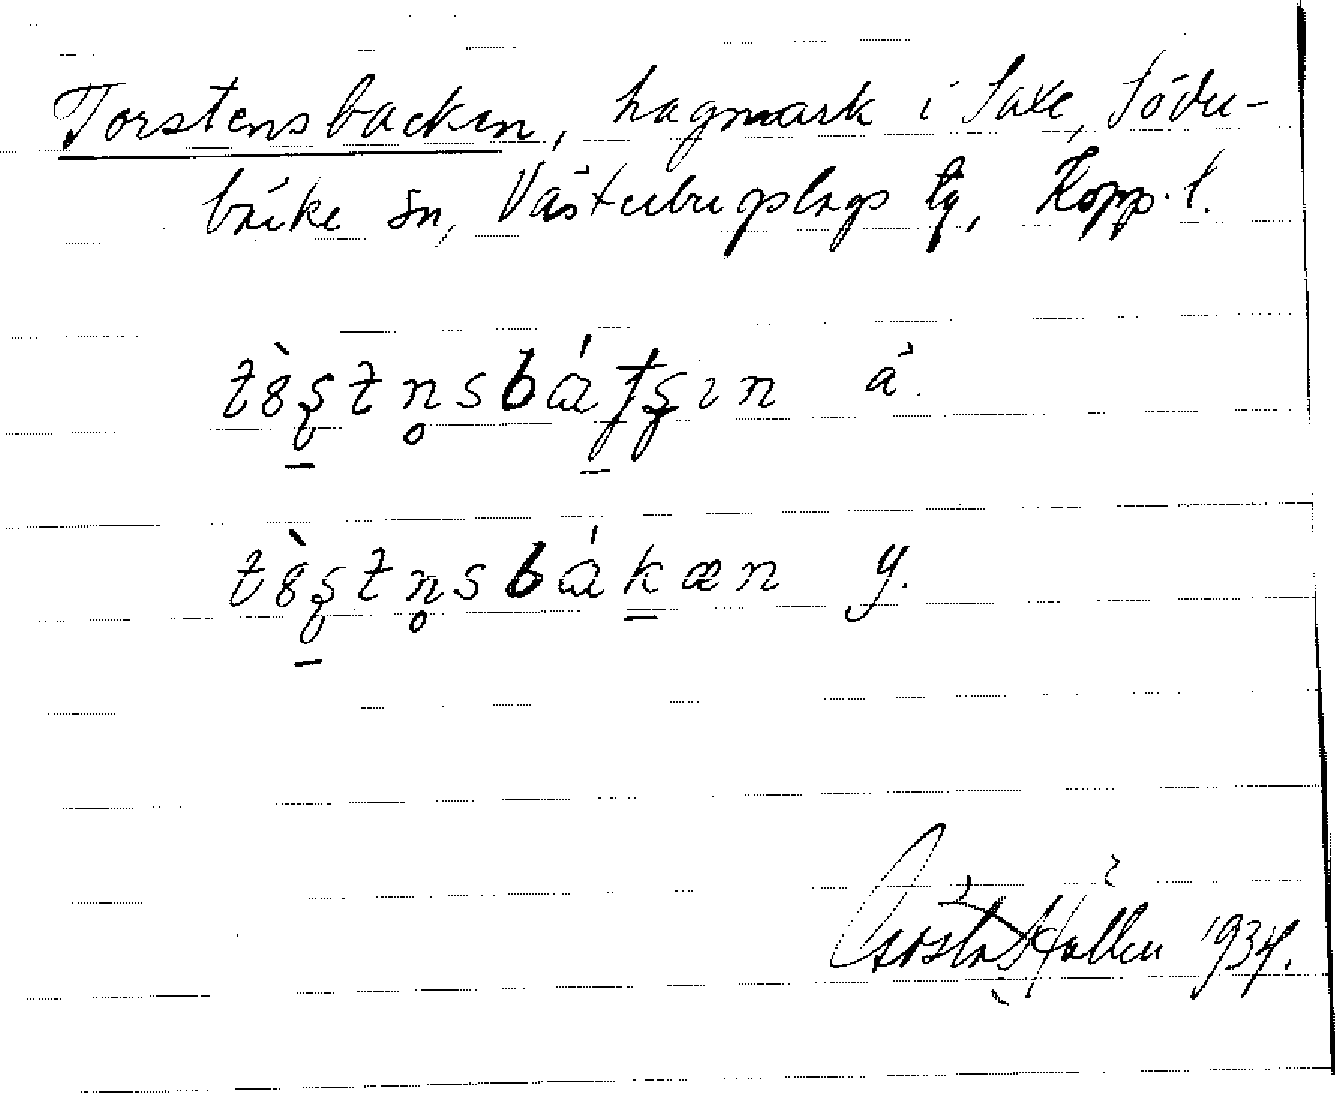 Torstensbacken, hagmark i Saxe, Söder-
bärke sn, Västerbergslags tg, Kopp. l.
tö̀ʂtn̥sbátʂın ä.
tö̀ʂtn̥sbákæn y.
Gösta Hallen 1934.